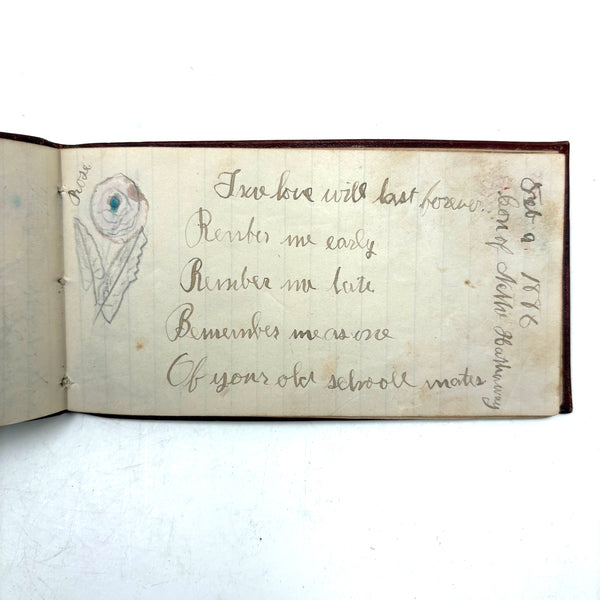 Rose
True love will last forever.
Rember me early
Remember me late
Remember me as one
Of your old schooll mates
Feb 9 1886
of Nettie Hathaway